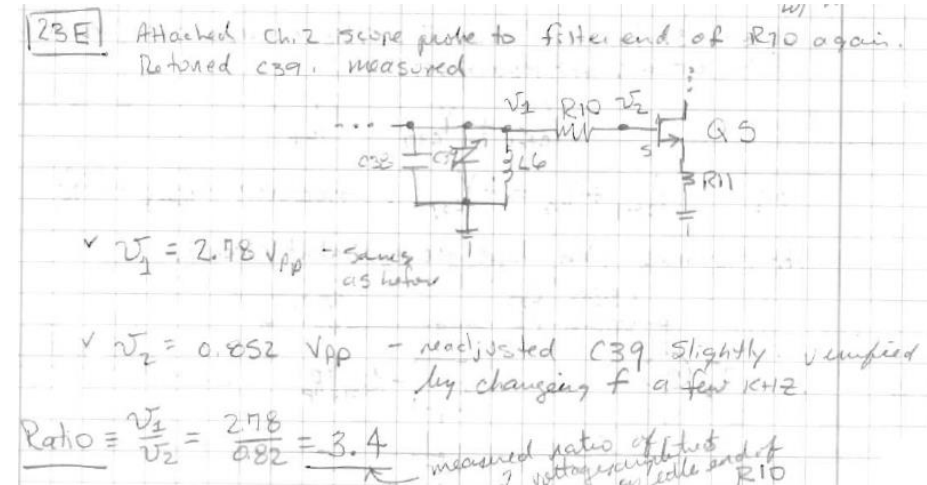 23E Attached ch. 2 scope probe to filter end of R10 again.
Retuned C39. measured
V1 R10 V2
Q5
C38 C39 L6 S
R11
✓ V1 = 2.78 Vpp - same
as before
✓ V2 = 0.852 Vpp - readjusted C39 slightly verified
by changing f a few KHZ.
Ratio ≡ V1/V2 = 2.78/0.82 = 3.4
measured ratio of
voltages end of
R10